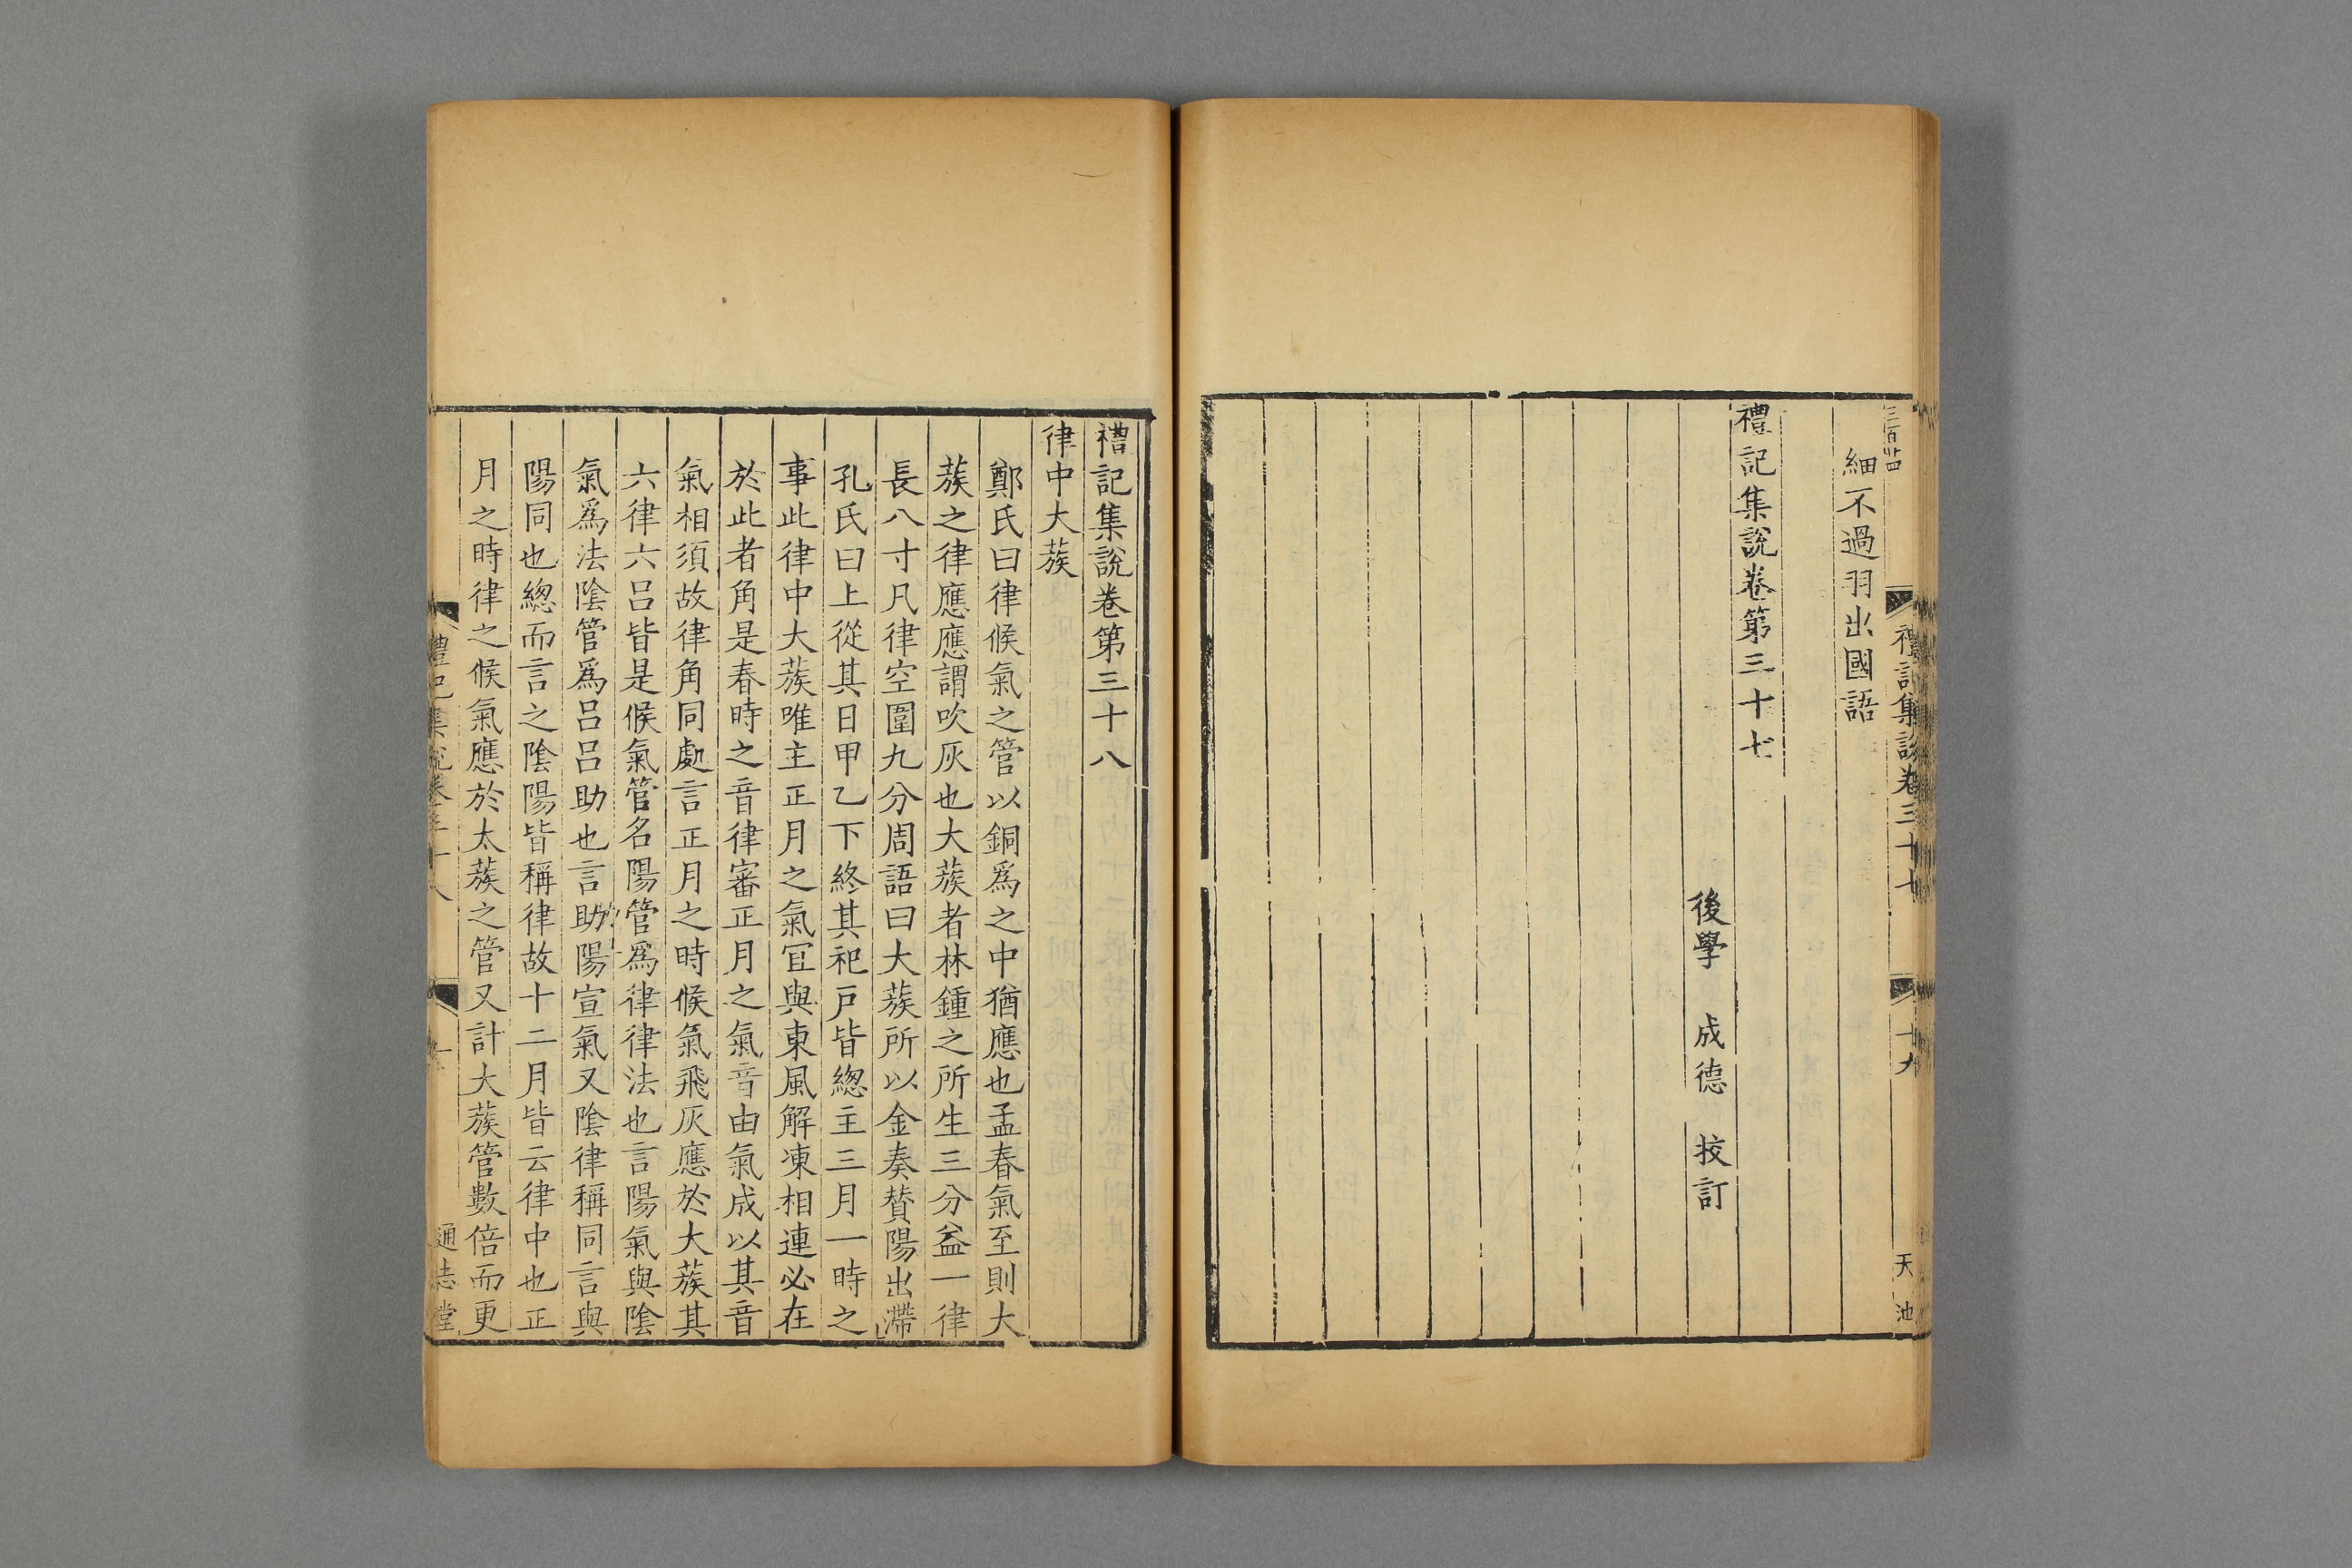 三百廿四
禮記集說卷三十七
十九
天池
細不過羽出國語
禮記集說卷第三十七
後學 成德 挍訂
禮記集說卷第三十八
律中大蔟
鄭氏曰律候氣之管以銅爲之中猶應也孟春氣至則大
蔟之律應應謂吹灰也大蔟者林鍾之所生三分益一律
長八寸凡律空圍九分周語曰大蔟所以金奏賛陽出滯
孔氏曰上從其日甲乙下終其祀戶皆緫主三月一時之
事此律中大蔟唯主正月之氣冝與東風解凍相連必在
於此者角是春時之音律審正月之氣音由氣成以其音
氣相須故律角同處言正月之時候氣飛灰應於大蔟其
六律六呂皆是候氣管名陽管爲律律法也言陽氣與陰
氣爲法陰管爲呂呂助也言助陽宣氣又陰律稱同言與
陽同也緫而言之陰陽皆稱律故十二月皆云律中也正
月之時律之候氣應於太蔟之管又計大蔟管數倍而更
禮記集說卷三十八
一
通志堂